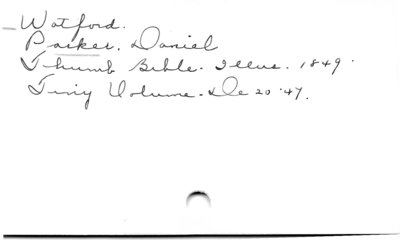 Watford.
Parker. Daniel
Thumb Bible. Illus. 1849.
Tiny Volume. De 20 '47.